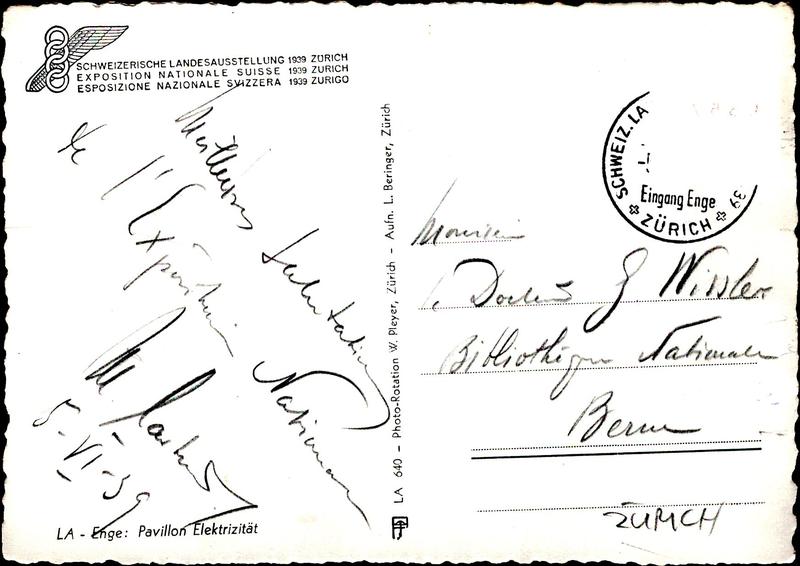 SCHWEIZERISCHE LANDESAUSSTELLUNG 1939 ZÜRICH
EXPOSITION NATIONALE SUISSE 1939 ZURICH
ESPOSIZIONE NAZIONALE SVIZZERA 1939 ZURIGO
Meilleures salutations
de l'Exposition Nationale
5-VI-39
LA - Enge: Pavillon Elektrizität
LA 640 – Photo-Rotation W. Pleyer, Zürich – Aufn. L. Beringer, Zürich
SCHWEIZ. LA
39
Eingang Enge
ZÜRICH
Monsieur
le Docteur
Bibliothèque Nationale
Berne
ZÜRICH